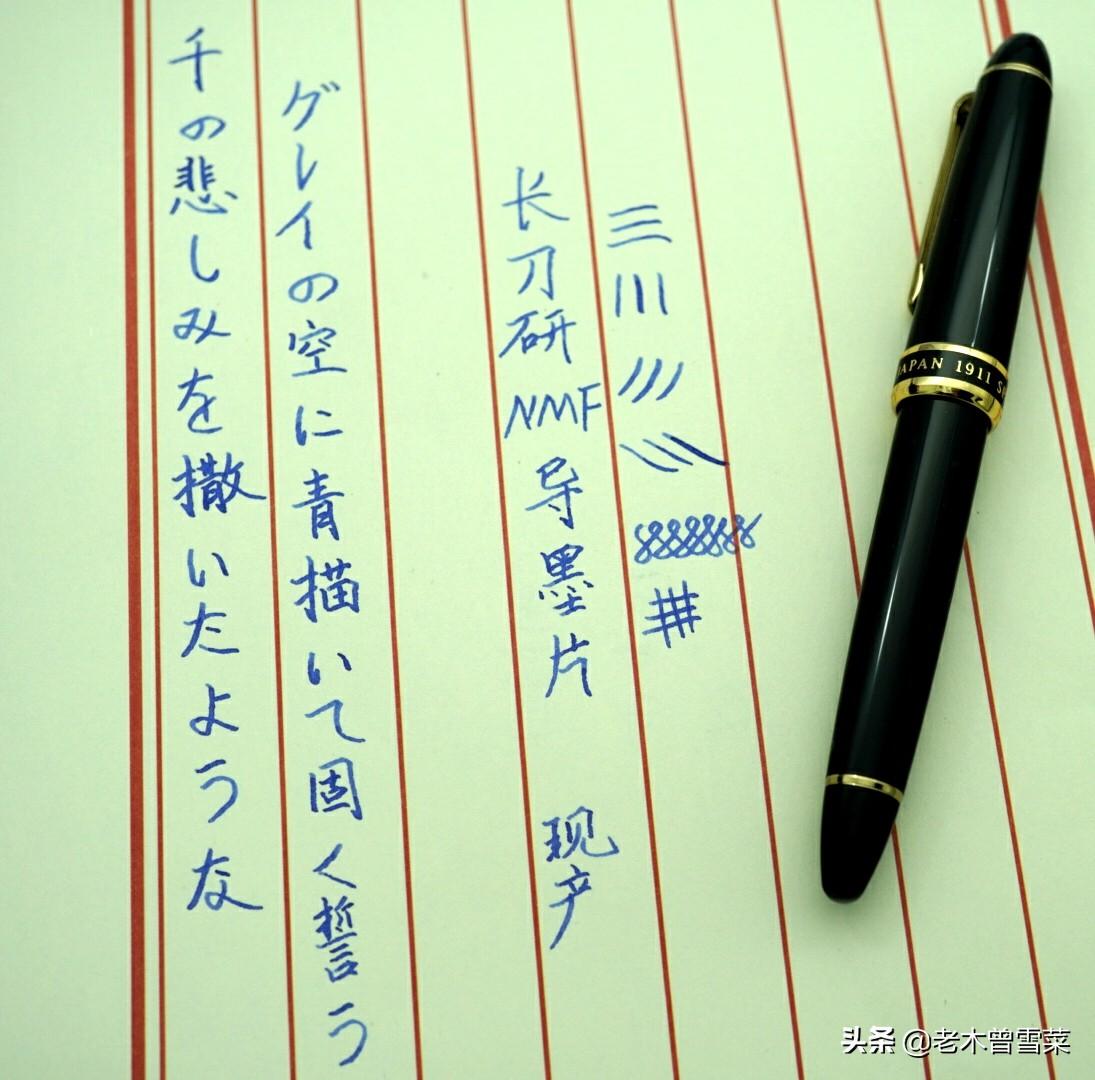 千の悲しみを撒いたような
グレイの空に青描いて固く誓う
长刀研NMF导墨片 现产
JAPAN 1911
头条 @老木曾雪菜